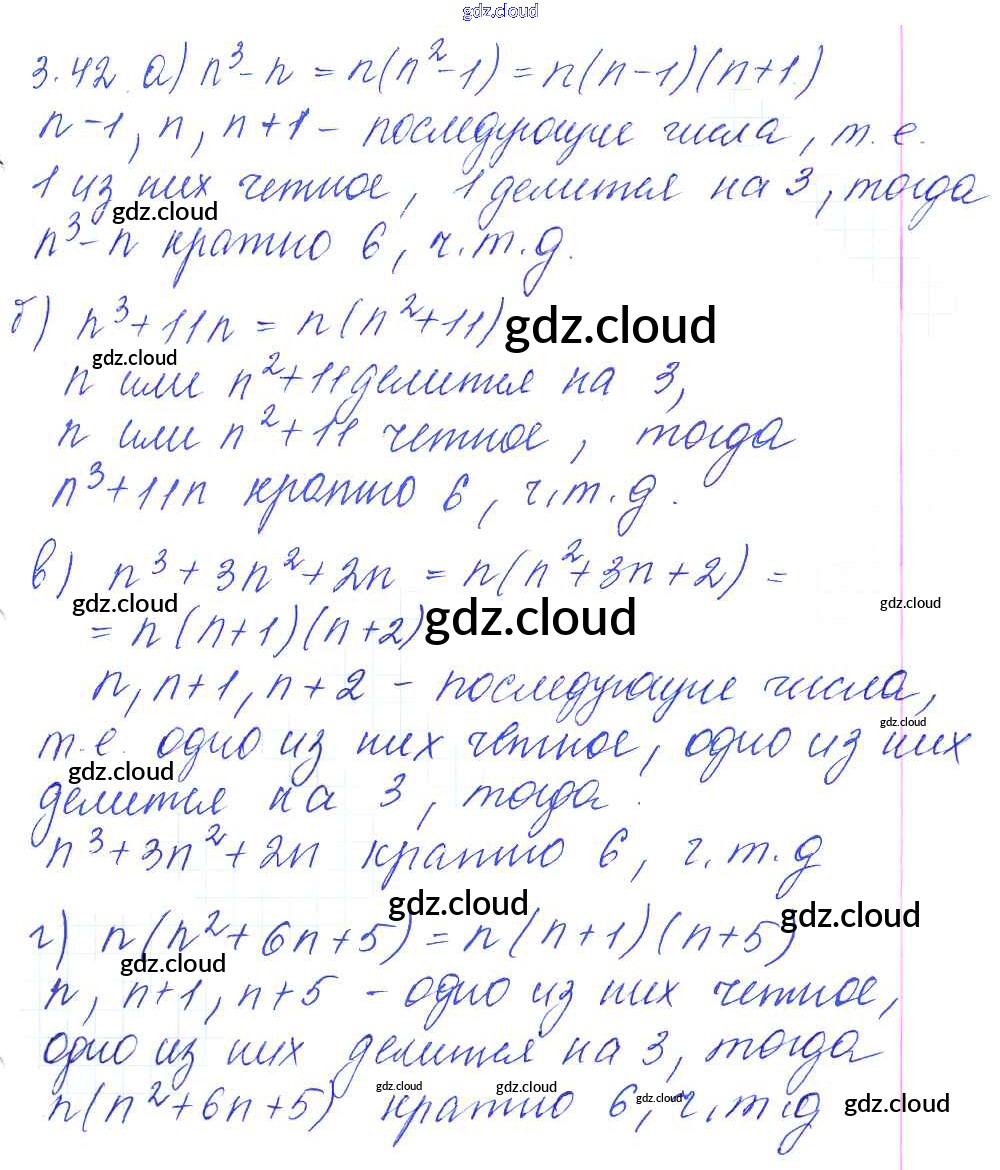 gdz.cloud
3.42 а) n³-n = n(n²-1) = n(n-1)(n+1)
n-1, n, n+1 - последующие числа, т.е.
1 из них четное, 1 делится на 3, тогда
gdz.cloud
n³-n кратно 6, ч.т.д.
б) n³+11n = n(n²+11) gdz.cloud
gdz.cloud
n или n²+11 делится на 3,
n или n²+11 четное, тогда
n³+11n кратно 6, ч.т.д.
в) n³+3n²+2n = n(n²+3n+2) =
gdz.cloud gdz.cloud
= n(n+1)(n+2) gdz.cloud
n, n+1, n+2 - последующие числа,
gdz.cloud
т.е. одно из них четное, одно из них
gdz.cloud
делится на 3, тогда
n³+3n²+2n кратно 6, ч.т.д
gdz.cloud gdz.cloud
г) n(n²+6n+5) = n(n+1)(n+5)
gdz.cloud
n, n+1, n+5 - одно из них четное,
одно из них делится на 3, тогда
gdz.cloud gdz.cloud gdz.cloud
n(n²+6n+5) кратно 6, ч.т.д gdz.cloud